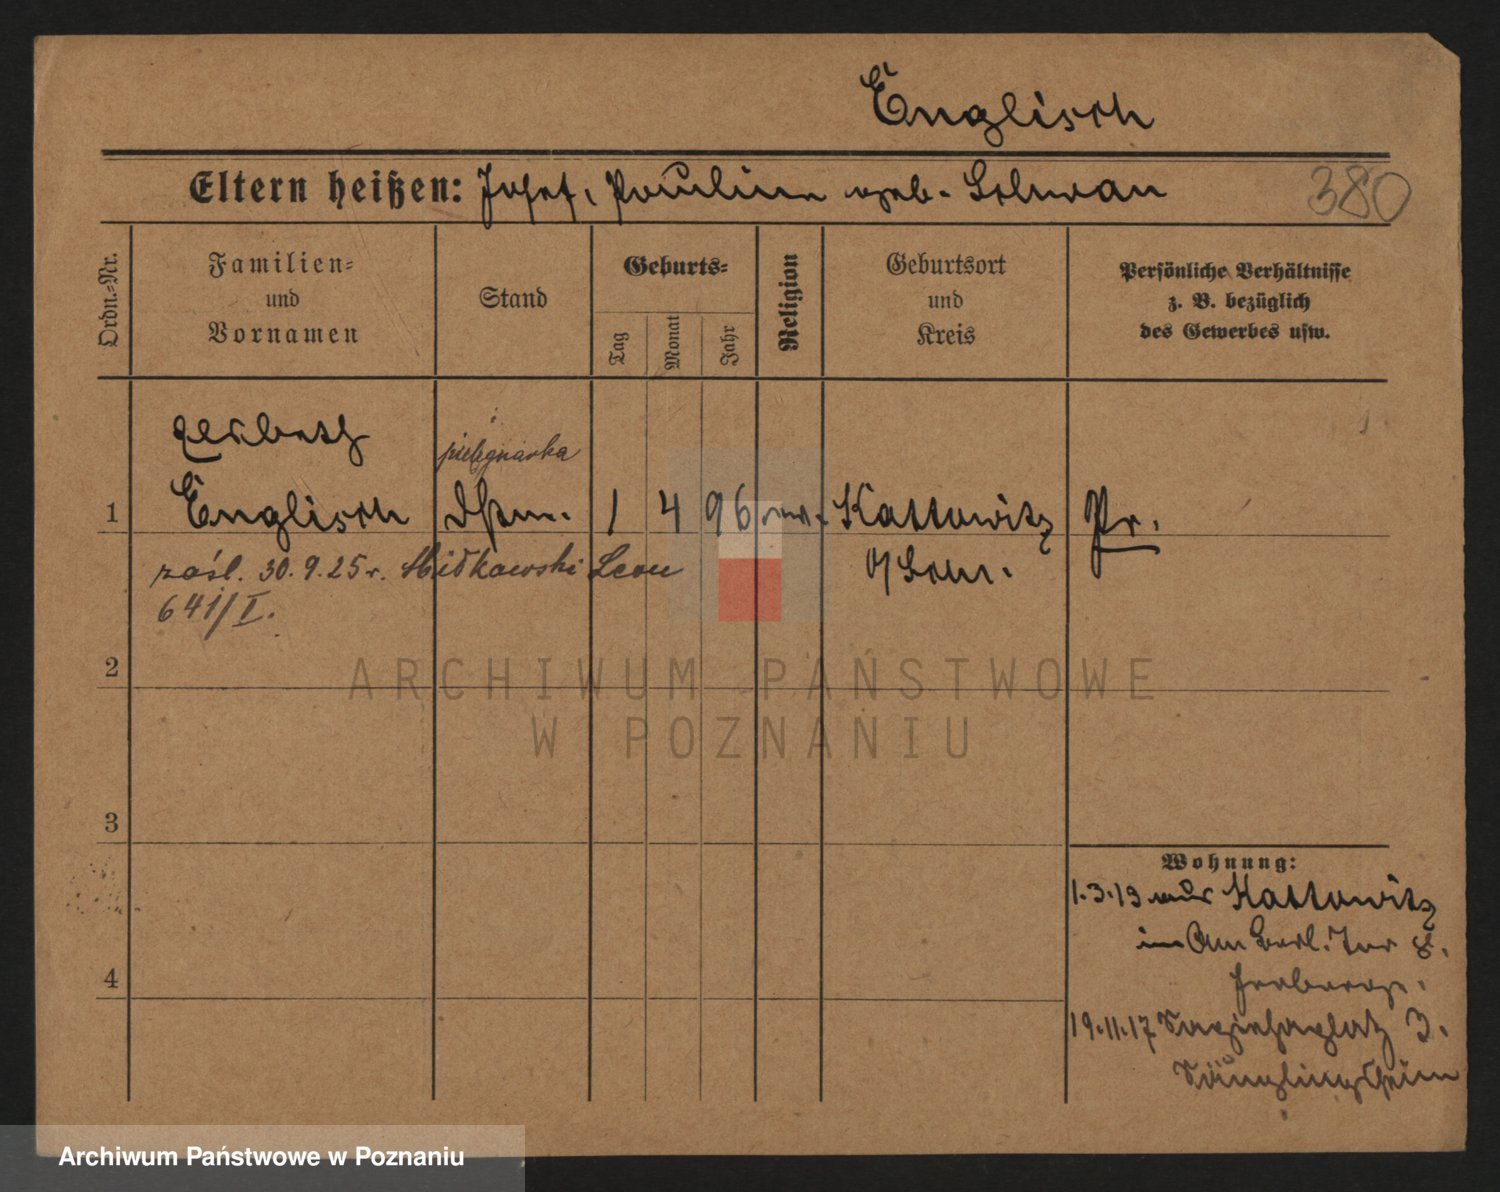 Englisch
Eltern heißen: Josef, Pauline geb. Schwan
380
Ordn.-Nr.
Familien-
und
Vornamen
Stand
Geburts-
Tag
Monat
Jahr
Religion
Geburtsort
und
Kreis
Persönliche Verhältnisse
z. B. bezüglich
des Gewerbes usw.
pielęgniarka
1 Englisch 1 4 96 Kattowitz Pr.
O/Schl.
zaśl. 30.9.25 r. Leon
641/I.
2
3
4
Wohnung:
1.3.13 aus Kattowitz
Am Berl. Tor 8.
19.11.17 Sapiehaplatz 3.
Säuglingsheim
ARCHIWUM PAŃSTWOWE
W POZNANIU
Archiwum Państwowe w Poznaniu